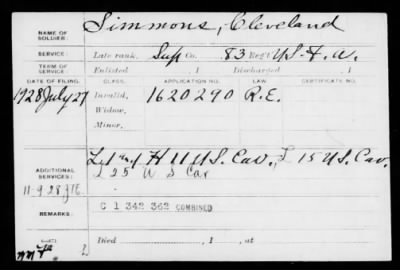 NAME OF SOLDIER: Simmons, Cleveland
SERVICE: Late rank, Sup Co. 83 Reg't U.S. F. A.
TERM OF SERVICE: Enlisted , 1 Discharged , 1
DATE OF FILING. CLASS. APPLICATION NO. LAW. CERTIFICATE NO.
1928 July 27 Invalid, 1620290 R.E.
Widow,
Minor,
ADDITIONAL SERVICES: H 11 U.S. Cav., L 15 U.S. Cav.
L 25 U S Cav
11-9-28
REMARKS: C 1 342 362 COMBINED
Died , 1 , at